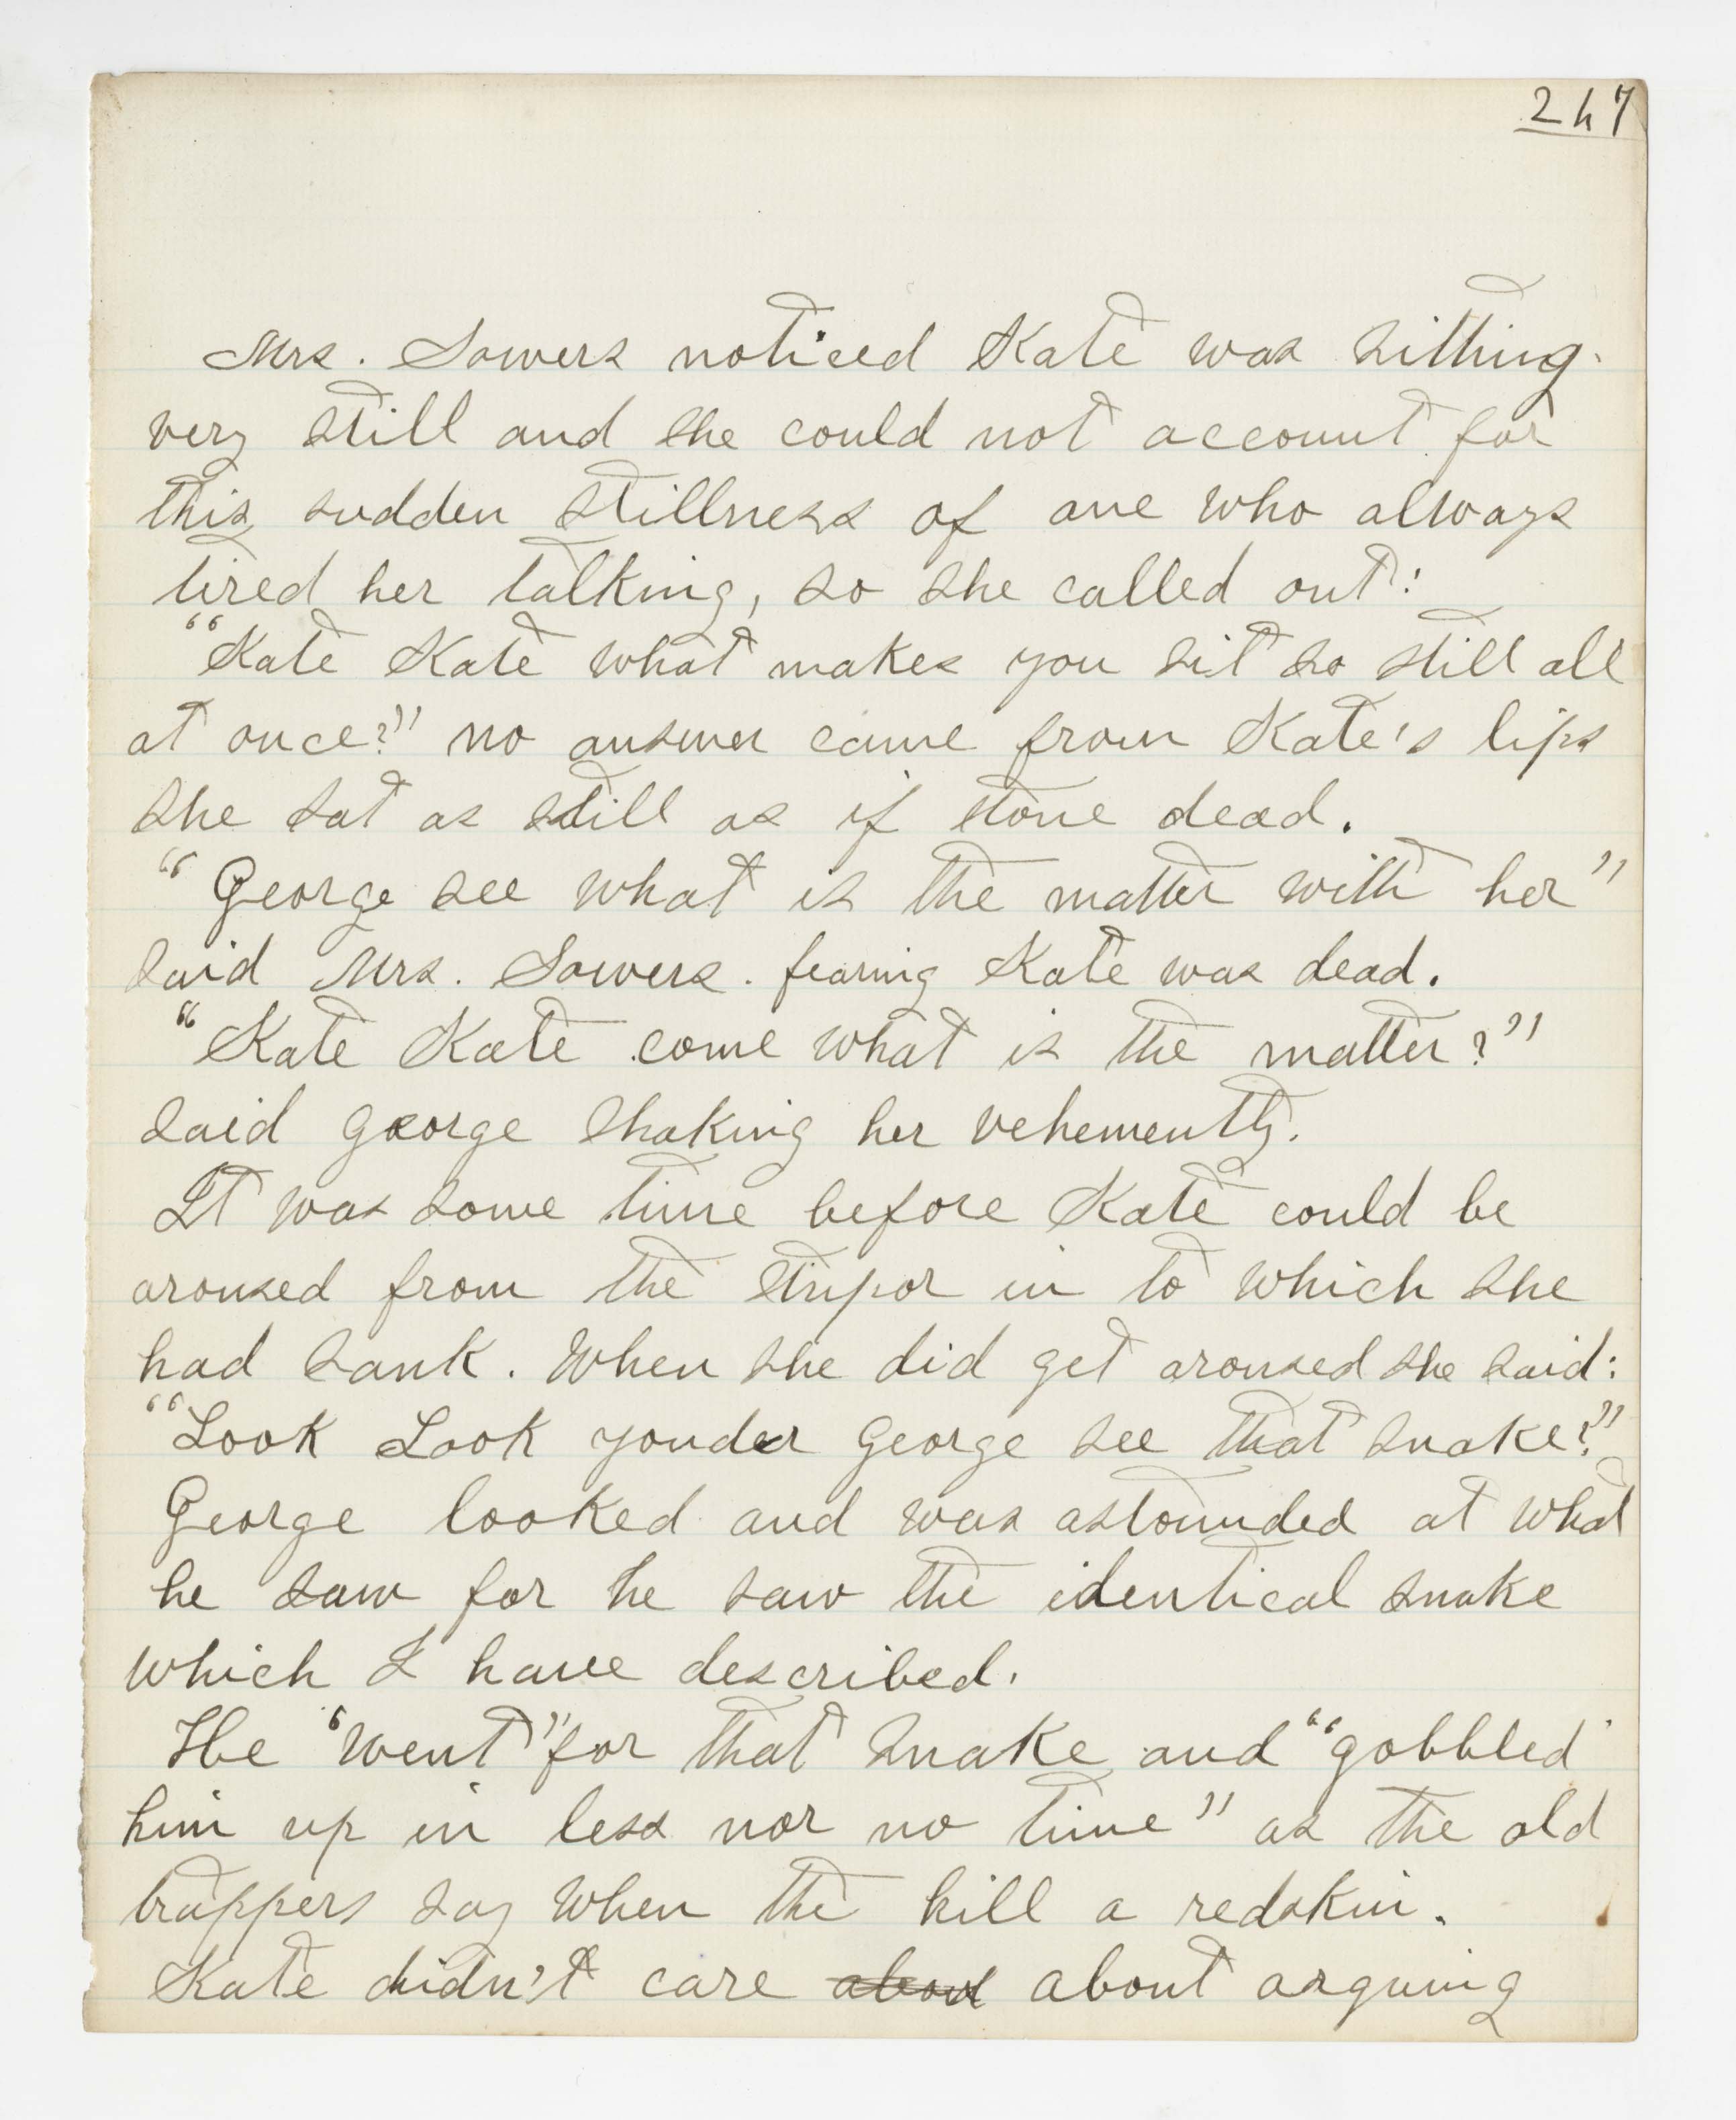 247
Mrs. Sowers noticed Kate was sitting
very still and she could not account for
this sudden stillness of one who always
tired her talking, so she called out:
"Kate Kate what makes you sit so still all
at once?" no answer came from Kate's lips
she sat as still as if stone dead.
"George see what is the matter with her"
said Mrs. Sowers. fearing Kate was dead.
"Kate Kate come what is the matter?"
said george shaking her vehemently.
It was some time before Kate could be
aroused from the stupor in to which she
had sank. When she did get aroused she said:
"Look Look yonder George see that snake?"
George looked and was astounded at what
he saw for he saw the identical snake
which I have described.
He "went" for that snake and "gobbled
him up in less nor no time" as the old
trappers say when the kill a redskin.
Kate didn't care about about arguing